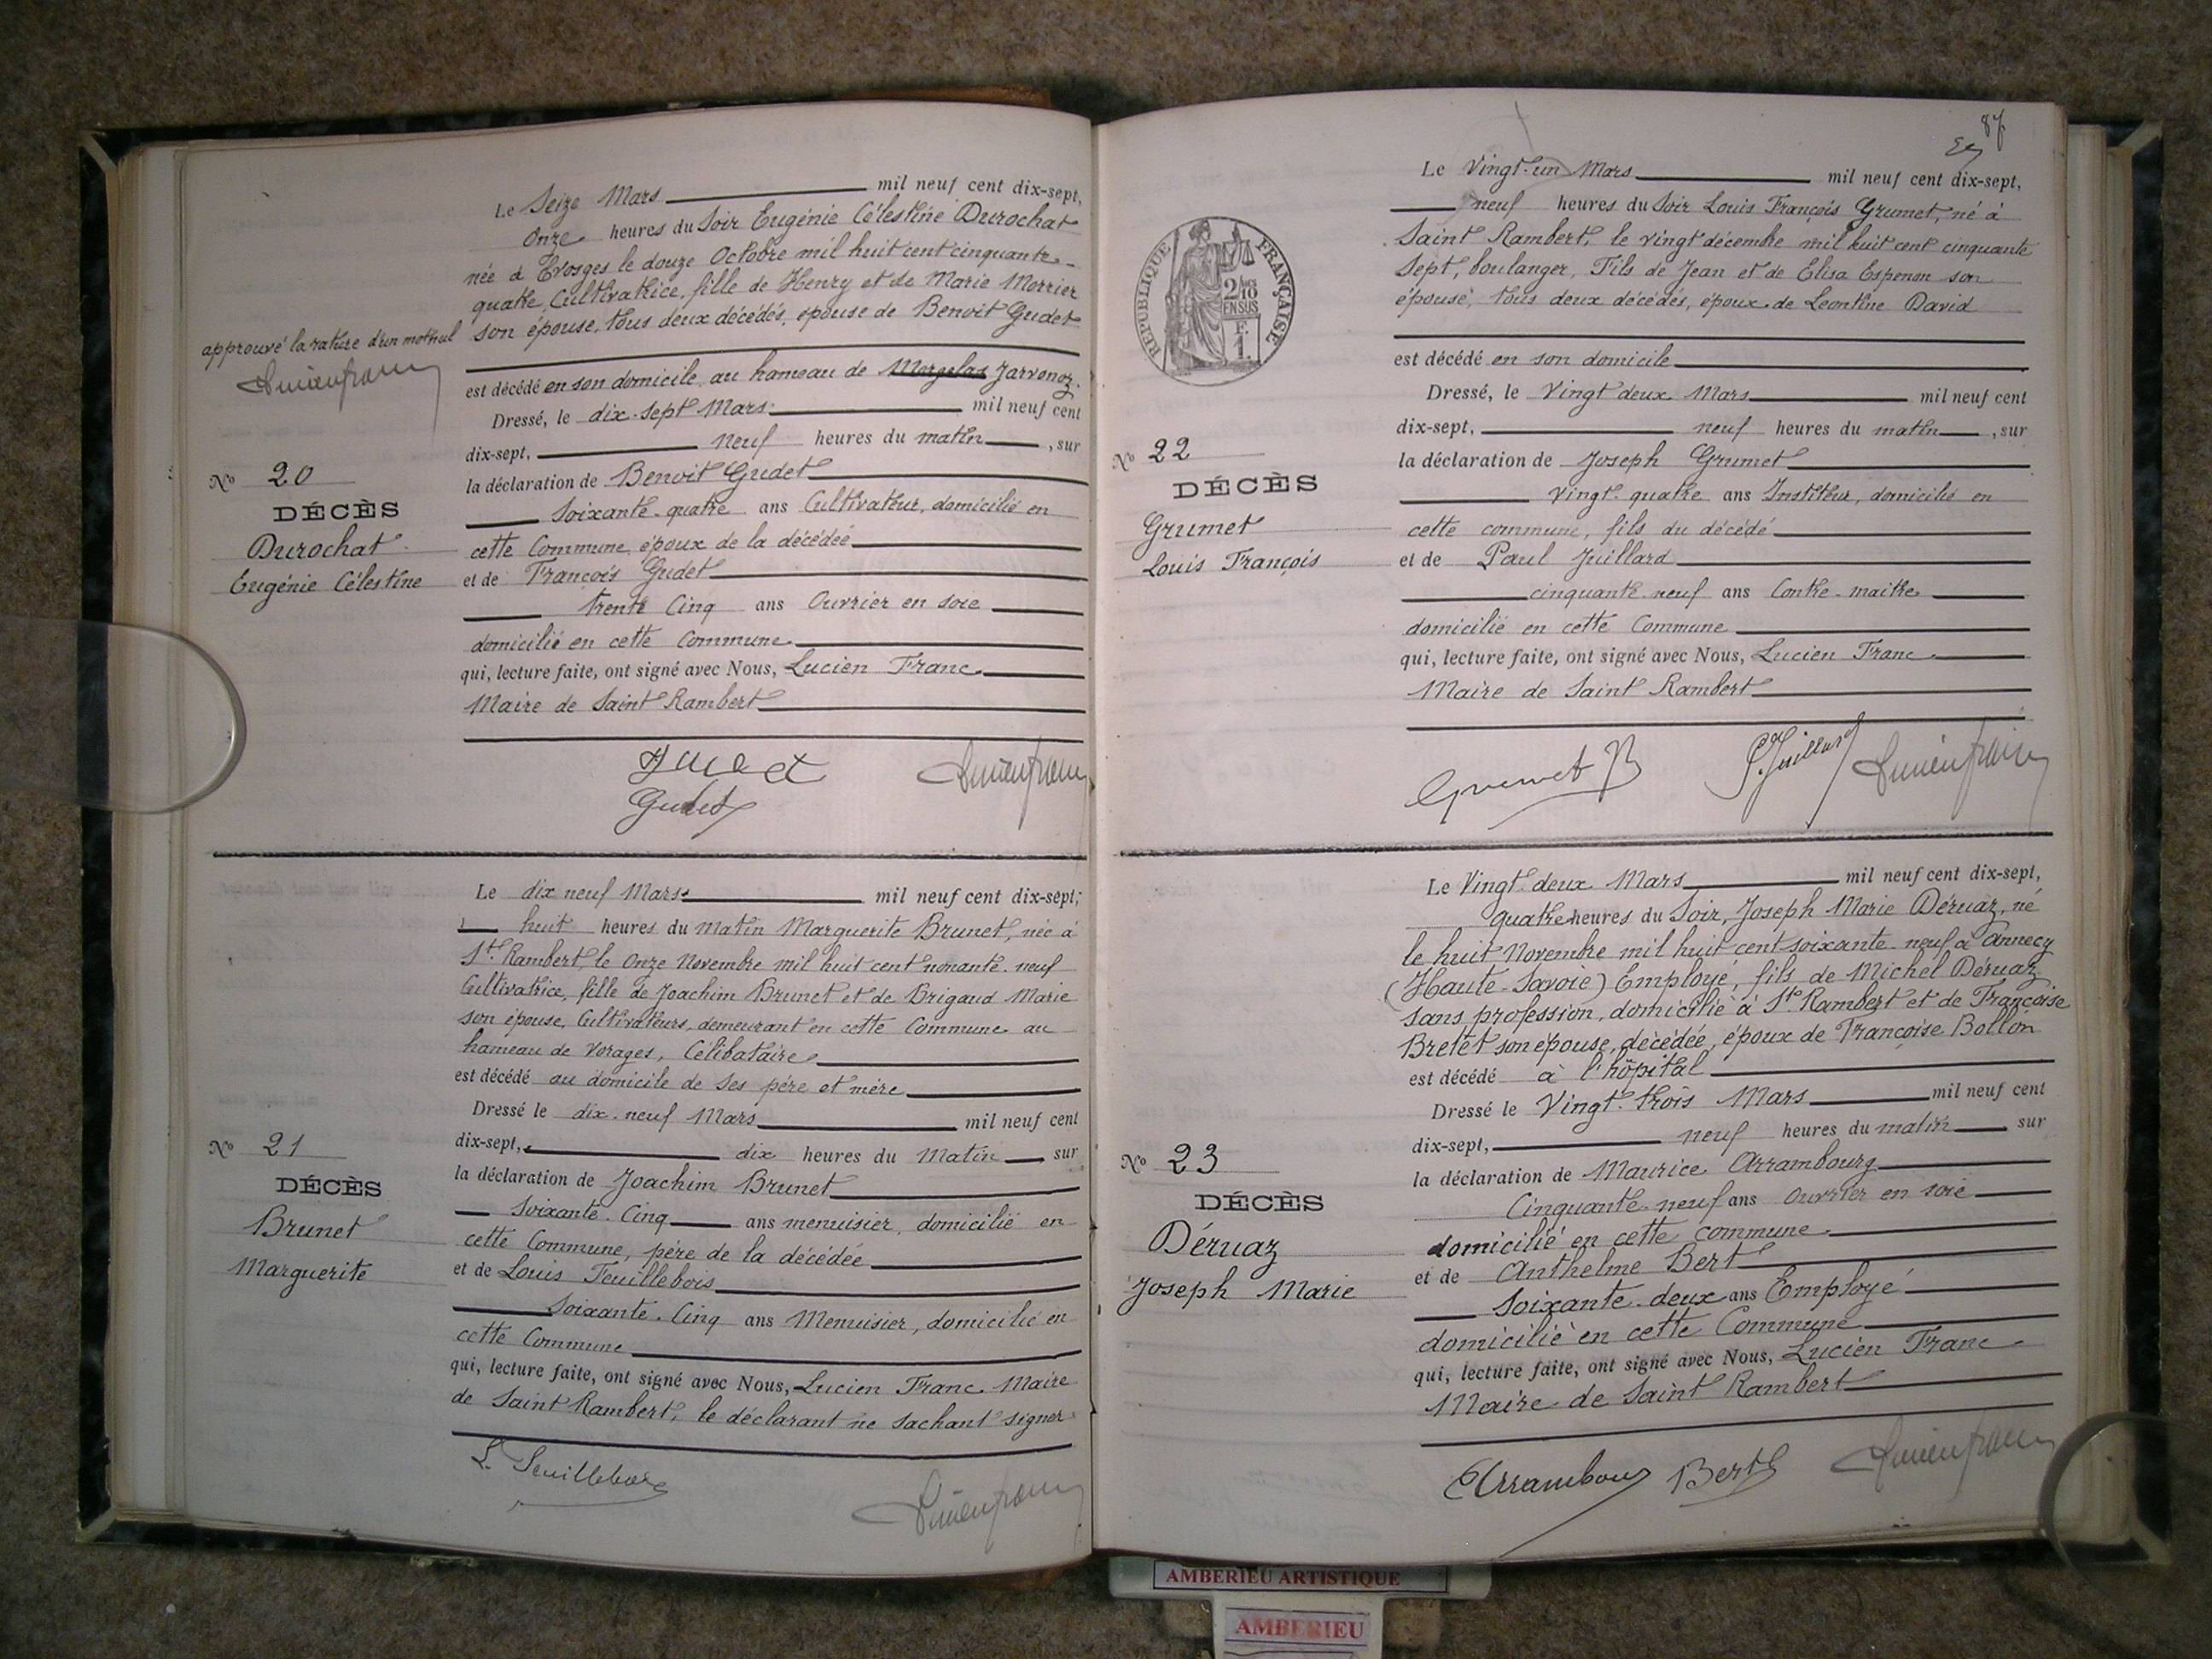 Le Seize Mars mil neuf cent dix-sept,
Onze heures du Soir Eugénie Célestine Durochat
née à Evosges le douze Octobre mil huit cent cinquante-
quatre, Cultivatrice, fille de Henry et de Marie Merrier
son épouse, tous deux décédés, épouse de Benoit Gudet
approuvé la rature d'un mot nul
est décédé en son domicile au hameau de Morgelas Jarvonoz.
Dressé, le dix-sept Mars mil neuf cent
dix-sept, neuf heures du matin, sur
la déclaration de Benoit Gudet
Soixante-quatre ans Cultivateur, domicilié en
cette Commune, époux de la décédée
et de François Gudet
trente Cinq ans Ouvrier en soie
domicilié en cette Commune
qui, lecture faite, ont signé avec Nous, Lucien Franc
Maire de Saint Rambert
No 20
DÉCÈS
Durochat
Eugénie Célestine
Gudet
Gudet
Lucien franc
Le dix neuf Mars mil neuf cent dix-sept,
huit heures du matin Marguerite Brunet, née à
St Rambert, le Onze Novembre mil huit cent nonante-neuf
Cultivatrice, fille de Joachim Brunet et de Brigaud Marie
son épouse, Cultivateurs, demeurant en cette Commune au
hameau de Vorages, Célibataire
est décédé au domicile de ses père et mère
Dressé le dix-neuf Mars mil neuf cent
dix-sept, dix heures du Matin sur
la déclaration de Joachim Brunet
Soixante-Cinq ans menuisier, domicilié en
cette Commune, père de la décédée
et de Louis Feuillebois
Soixante-Cinq ans Menuisier, domicilié en
cette Commune
qui, lecture faite, ont signé avec Nous, Lucien Franc Maire
de Saint Rambert, le déclarant ne sachant signer
No 21
DÉCÈS
Brunet
Marguerite
L. Feuillebois
Lucien franc
87
Le Vingt-un Mars mil neuf cent dix-sept,
neuf heures du Soir Louis François Grumet, né à
Saint Rambert, le vingt décembre mil huit cent cinquante
Sept, boulanger, Fils de Jean et de Elisa Espenon son
épouse, tous deux décédés, époux de Leontine David
est décédé en son domicile
Dressé, le Vingt deux Mars mil neuf cent
dix-sept, neuf heures du matin, sur
la déclaration de Joseph Grumet
Vingt-quatre ans Instituteur, domicilié en
cette commune, fils du décédé
et de Paul Juillard
cinquante-neuf ans Contre-maitre
domicilié en cette Commune
qui, lecture faite, ont signé avec Nous, Lucien Franc
Maire de Saint Rambert
RÉPUBLIQUE FRANÇAISE
2/10 EN SUS
F.
1.
No 22
DÉCÈS
Grumet
Louis François
Grumet
P. Juillard
Lucien franc
Le Vingt-deux Mars mil neuf cent dix-sept,
quatre heures du Soir, Joseph Marie Déruaz, né
le huit Novembre mil huit cent soixante-neuf à Annecy
(Haute-Savoie) Employé, fils de Michel Déruaz
sans profession, domicilié à St Rambert et de Françoise
Bretet son épouse, décédée, époux de Françoise Bollon
est décédé à l'hôpital
Dressé le Vingt-trois Mars mil neuf cent
dix-sept, neuf heures du matin sur
la déclaration de Maurice Arrambourg
Cinquante-neuf ans Ouvrier en soie
domicilié en cette commune
et de Anthelme Bert
Soixante-deux ans Employé
domicilié en cette Commune
qui, lecture faite, ont signé avec Nous, Lucien Franc
Maire de Saint Rambert
No 23
DÉCÈS
Déruaz
Joseph Marie
Arrambourg
Bert
Lucien franc
AMBERIEU ARTISTIQUE
AMBERIEU